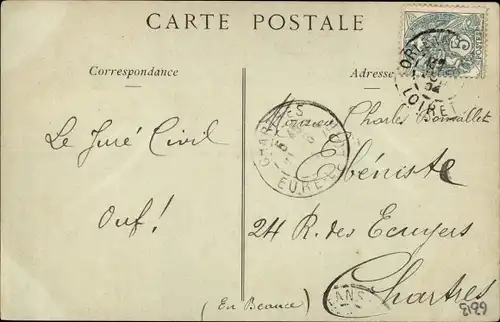 CARTE POSTALE
Correspondance
Adresse
Le Juré Civil
Ouf!
Monsieur Charles
Ébéniste
24 R. des Ecuyers
Chartres
(En Beauce)
ORLEANS
LOIRET
CHARTRES
EURE